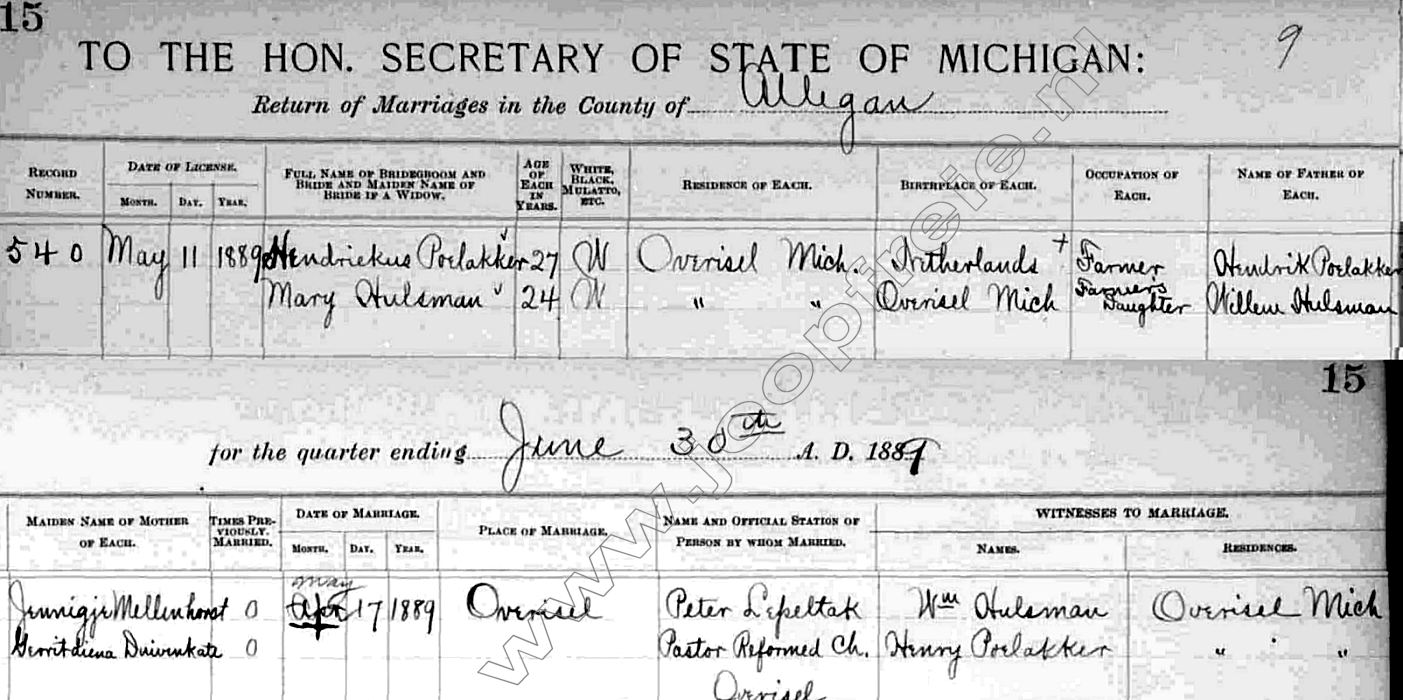 15
9
TO THE HON. SECRETARY OF STATE OF MICHIGAN:
Return of Marriages in the County of Allegan
RECORD NUMBER. DATE OF LICENSE. MONTH. DAY. YEAR. FULL NAME OF BRIDEGROOM AND BRIDE AND MAIDEN NAME OF BRIDE IF A WIDOW. AGE OF EACH IN YEARS. WHITE, BLACK, MULATTO, ETC. RESIDENCE OF EACH. BIRTHPLACE OF EACH. OCCUPATION OF EACH. NAME OF FATHER OF EACH.
540 May 11 1889 Hendriekus Poelakker 27 W Overisel Mich. Netherlands + Farmer Hendrik Poelakker
Mary Hulsman 24 W " " Overisel Mich Farmers Daughter Willem Hulsman
15
for the quarter ending June 30th A. D. 1889
MAIDEN NAME OF MOTHER OF EACH. TIMES PREVIOUSLY MARRIED. DATE OF MARRIAGE. MONTH. DAY. YEAR. PLACE OF MARRIAGE. NAME AND OFFICIAL STATION OF PERSON BY WHOM MARRIED. WITNESSES TO MARRIAGE. NAMES. RESIDENCES.
may
Jennigje Mellenhorst 0 Apr 17 1889 Overisel Peter Lepeltak Wm Hulsman Overisel Mich
Gerritdiena Duivenkate 0 Pastor Reformed Ch. Henry Poelakker " "
Overisel
www.joopfneie.nl